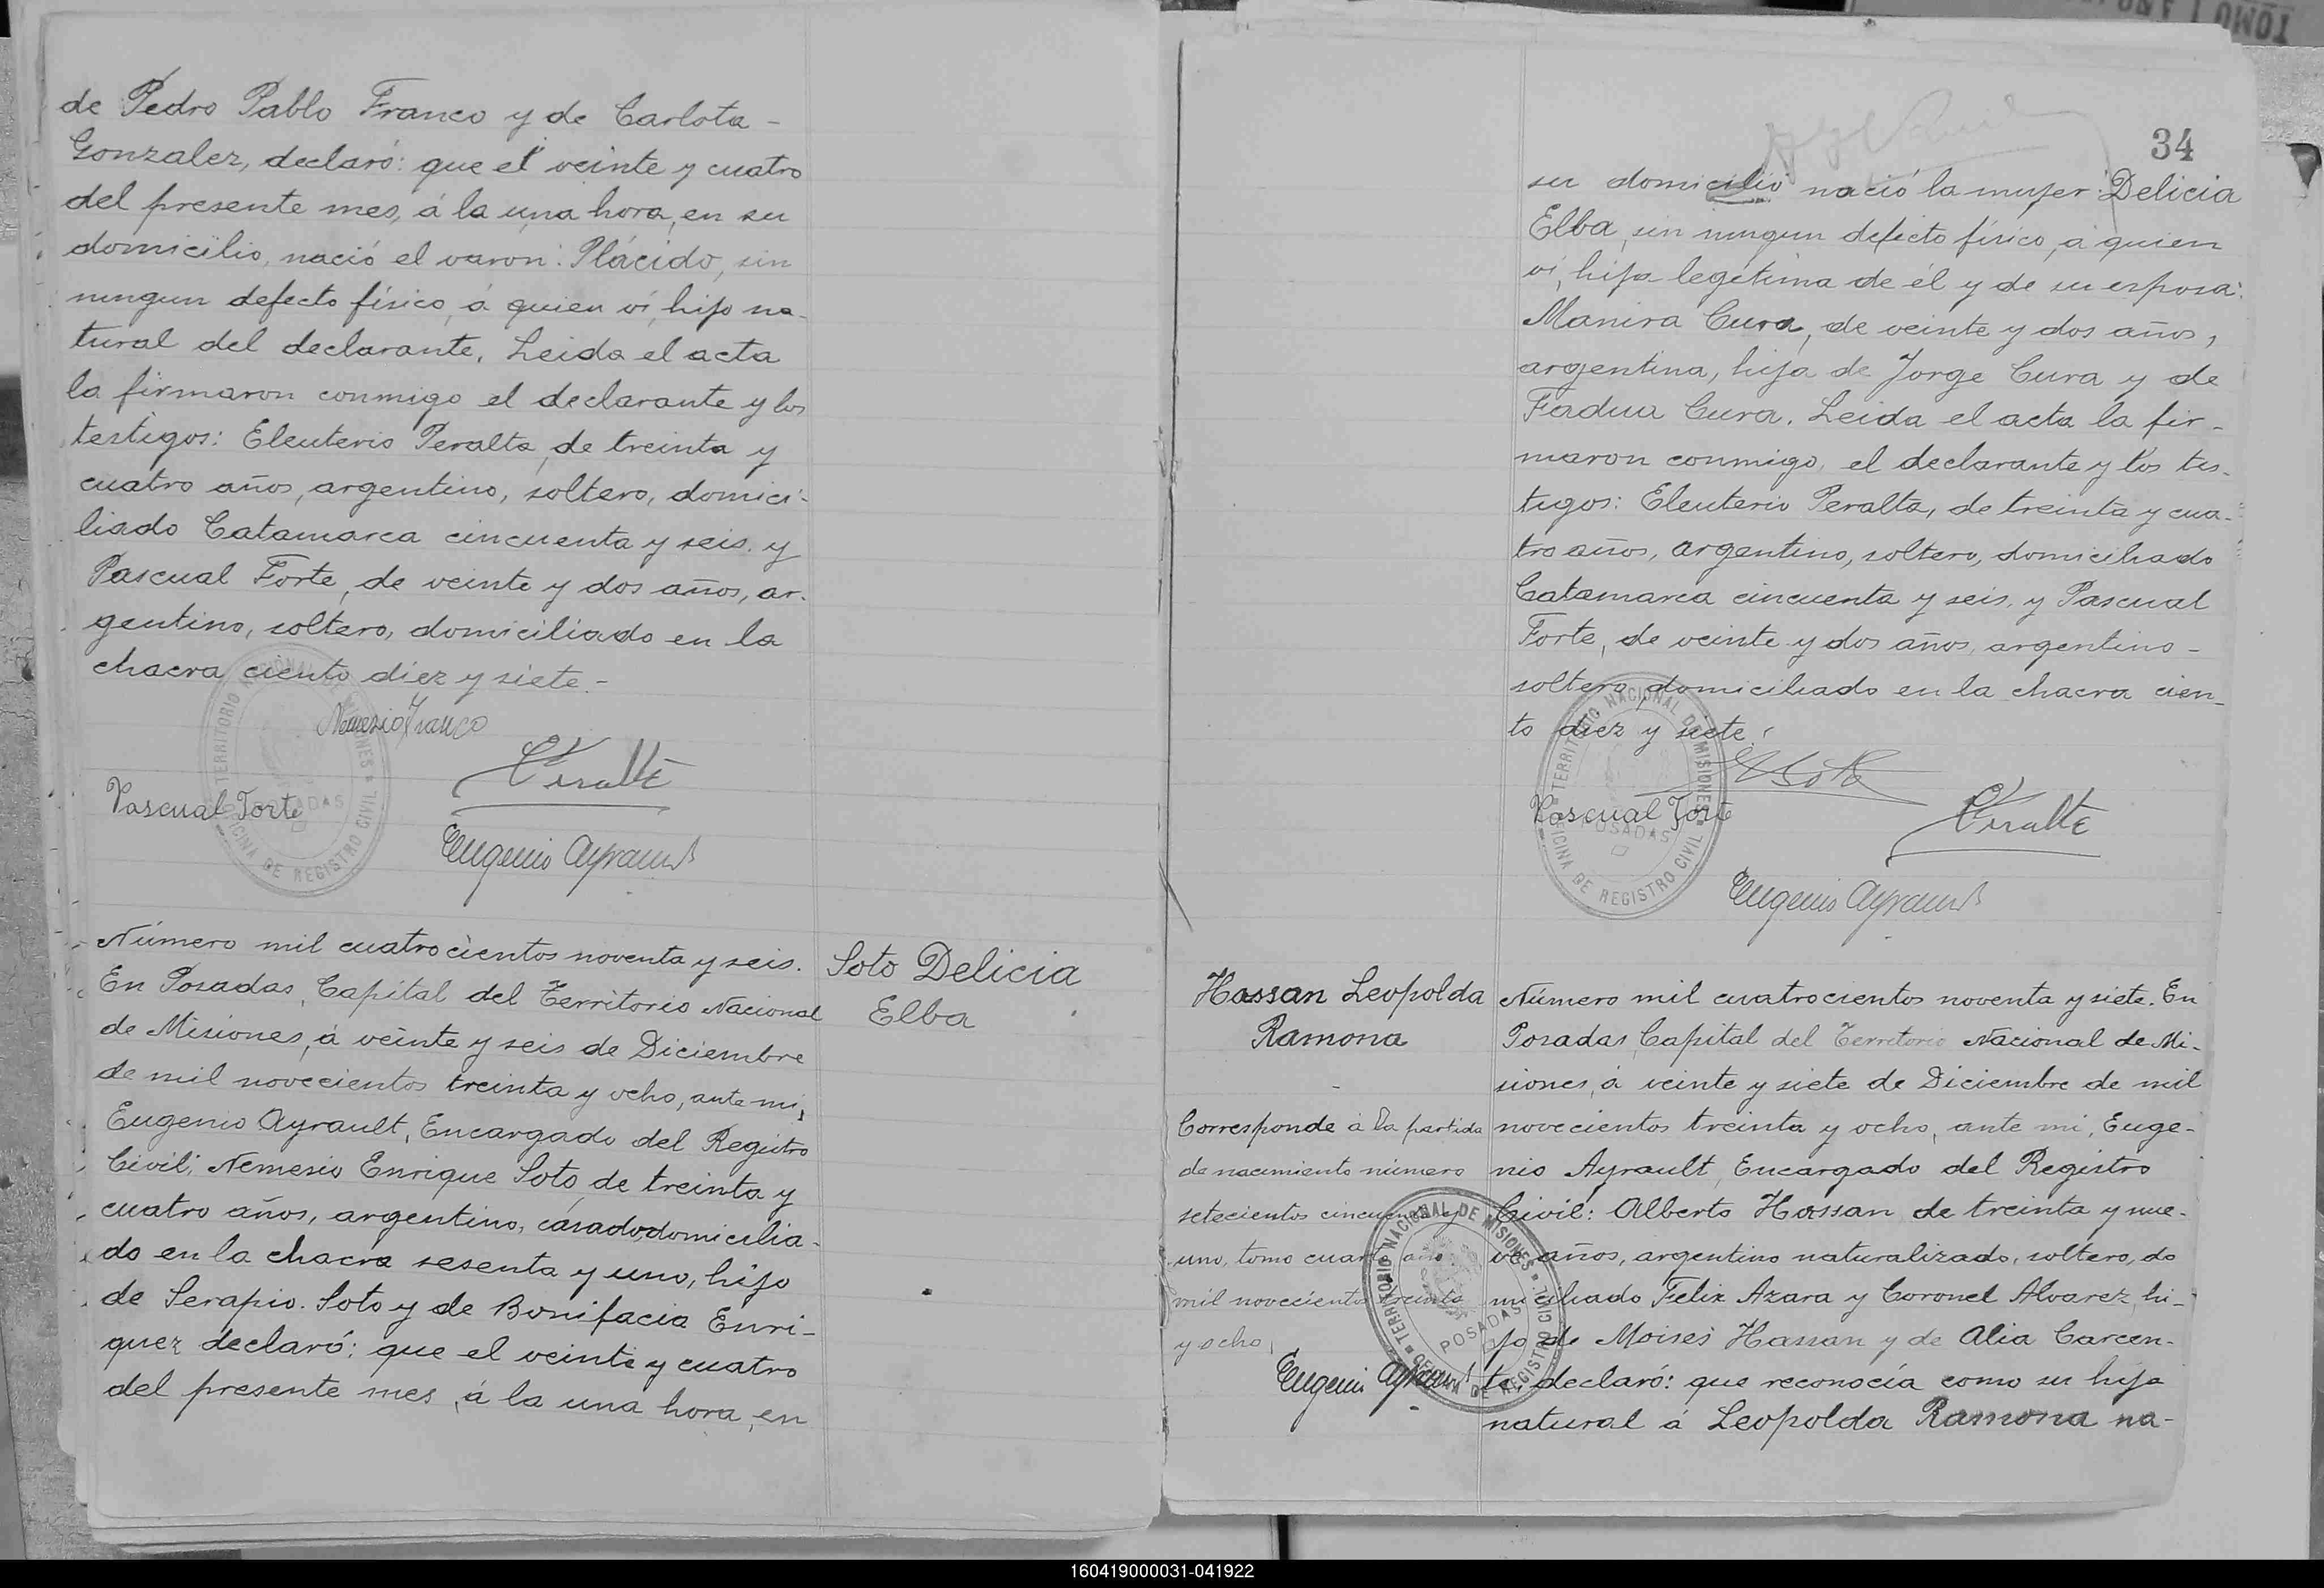 de Pedro Pablo Franco y de Carlota -
Gonzalez, declaró: que el veinte y cuatro
del presente mes, á la una hora, en su
domicilio, nació el varon: Plácido, sin
ningun defecto físico, á quien ví, hijo na-
tural del declarante. Leida el acta
la firmaron conmigo el declarante y los
testigos: Eleuterio Peralta, de treinta y
cuatro años, argentino, soltero, domici-
liado Catamarca cincuenta y seis y
Pascual Forte, de veinte y dos años, ar-
gentino, soltero, domiciliado en la
chacra ciento diez y siete.-
Nemesio Franco
Peralta
Pascual Forte
Eugenio Ayrault
TERRITORIO NACIONAL DE MISIONES
POSADAS
OFICINA DE REGISTRO CIVIL
Número mil cuatrocientos noventa y seis.
En Posadas, Capital del Territorio Nacional
de Misiones, á veinte y seis de Diciembre
de mil novecientos treinta y ocho, ante mi,
Eugenio Ayrault, Encargado del Registro
Civil; Nemesio Enrique Soto, de treinta y
cuatro años, argentino, casado, domicilia-
do en la chacra sesenta y uno, hijo
de Serapio Soto y de Bonifacia Enri-
quez declaró: que el veinte y cuatro
del presente mes, á la una hora, en
Soto Delicia
Elba
TOMO 1 AÑO
34
su domicilio nació la mujer: Delicia
Elba, sin ningun defecto físico, á quien
ví, hija legítima de él y de su esposa:
Manira Cura, de veinte y dos años,
argentina, hija de Jorge Cura y de
Fadua Cura. Leida el acta la fir-
maron conmigo, el declarante y los tes-
tigos: Eleuterio Peralta, de treinta y cua-
tro años, argentino, soltero, domiciliado
Catamarca cincuenta y seis, y Pascual
Forte, de veinte y dos años, argentino -
soltero, domiciliado en la chacra cien-
to diez y siete.
Pascual Forte
Peralta
Eugenio Ayrault
TERRITORIO NACIONAL DE MISIONES
POSADAS
OFICINA DE REGISTRO CIVIL
Hassan Leopolda
Ramona
-
Corresponde á la partida
de nacimiento número
setecientos cincuenta y
uno, tomo cuarto, año
mil novecientos treinta
y ocho,
Eugenio Ayrault
TERRITORIO NACIONAL DE MISIONES
POSADAS
OFICINA DE REGISTRO CIVIL
Número mil cuatrocientos noventa y siete. En
Posadas, Capital del Territorio Nacional de Mi-
siones, á veinte y siete de Diciembre de mil
novecientos treinta y ocho, ante mi, Euge-
nio Ayrault, Encargado del Registro
Civil: Alberto Hassan de treinta y nue-
ve años, argentino naturalizado, soltero, do
miciliado Felix Azara y Coronel Alvarez, hi-
jo de Moises Hassan y de Alia Carcen-
te, declaró: que reconocía como su hija
natural á Leopolda Ramona na-
160419000031-041922